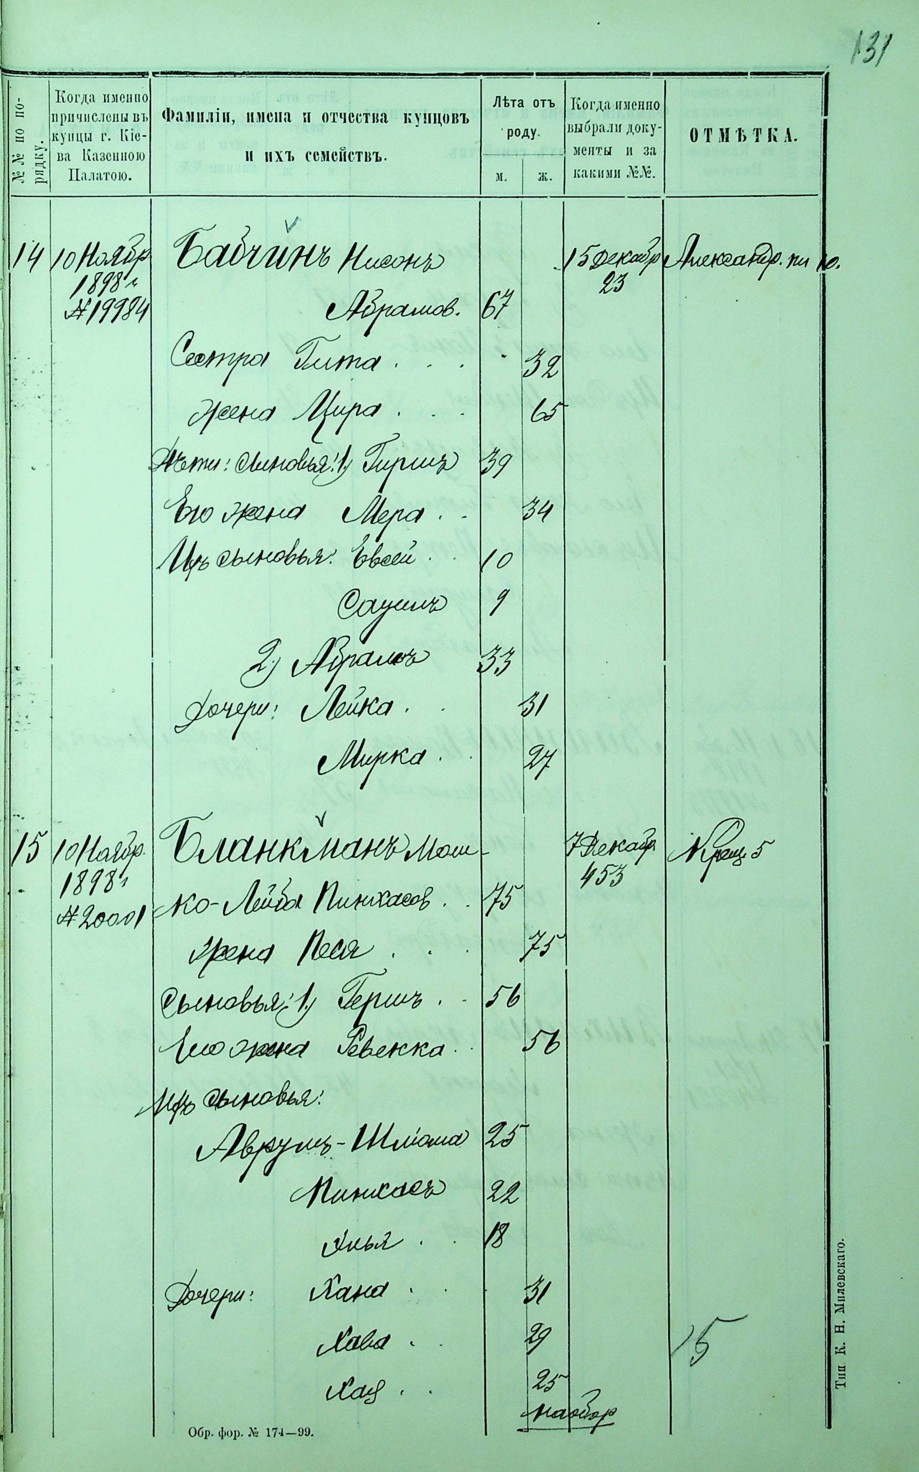 131
№№ по порядку.
Когда именно причислены въ купцы г. Кіева Казенною Палатою.
Фамиліи, имена и отчества купцовъ и ихъ семействъ.
Лѣта отъ роду.
м.
ж.
Когда именно выбрали документы и за какими №№.
ОТМѢТКА.
14 10 Ноябр. Бабчинъ Нисонъ 15 декабр. Александр. пл 10.
1898 г. 23
№ 19984 Абрамов. 67
Сестра Гита . . . 32
жена Цира . . . 65
Дѣти: сыновья: 1) Гиршъ 39
Его жена Мера . . 34
Ихъ сыновья: Евсей . . 10
Саулъ 9
2) Абрамъ 33
Дочери: Лейка . . 31
Мирка . . 27
15 10 Ноябр. Бланкманъ Мош- 7 Декабр. Крещ 5
1898 г. 453
№ 20001 ко-Лейба Пинхасов . . 75
Жена Песя . . . 75
Сыновья: 1) Гершъ . . 56
Его жена Ревекка . . 56
Ихъ сыновья:
Аврумъ-Шлиома 25
Пинхасъ 22
Илья . . 18
Дочери: Хана . . 31
Хава . . 29
Хая . . 25
15
Обр. фор. № 174—99.
Тип К. Н. Милевскаго.